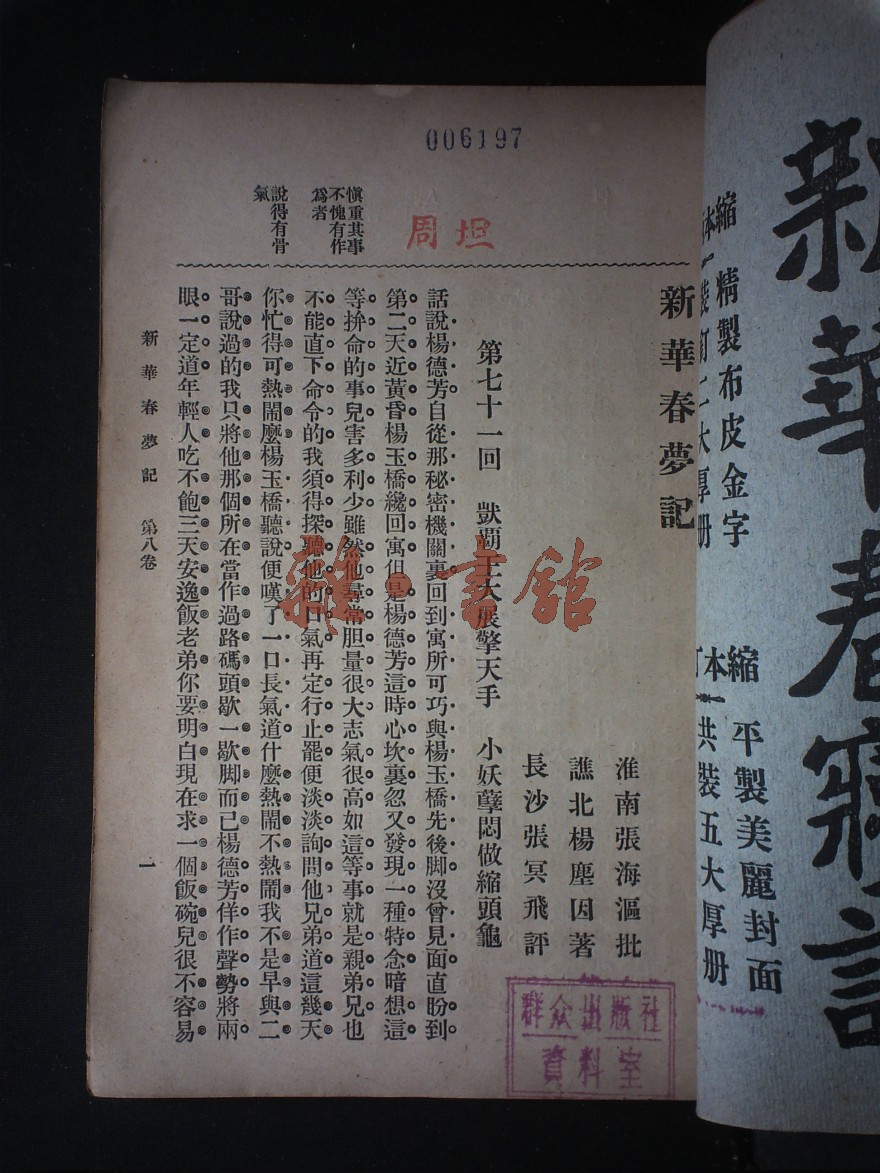 006197
新華春夢記
縮
本
精製布皮金字
裝訂二大厚册
縮
本
平製美麗封面
共裝五大厚册
新華春夢記
淮南張海漚批
譙北楊塵因著
長沙張冥飛評
第七十一回　獃霸王大展擎天手　小妖孽悶做縮頭龜
話說楊德芳自從那秘密機關裏回到寓所可巧與楊玉橋先後脚沒會見面直盼到
第二天近黃昏楊玉橋纔回寓但是楊德芳這時心坎裏忽又發現一種特念暗想這
等拚命的事兒害多利少雖然他尋常胆量很大志氣很高如這等事就是親弟兄也
不能直下命令的我須得探聽他的口氣再定行止罷便淡淡詢問他兄弟道這幾天
你忙得可熱鬧麼楊玉橋聽說便嘆了一口長氣道什麼熱鬧不熱鬧我不是早與二
哥說過的我只將他那個所在當作過路碼頭歇一歇脚而已楊德芳佯作聲勢將兩
眼一定道年輕人吃不飽三天安逸飯老弟你要明白現在求一個飯碗兒很不容易
慎重其事
不愧有作
為者
說得有骨
氣
周坦
新華春夢記　第八卷
一
雜·書館
群众出版社
資料室